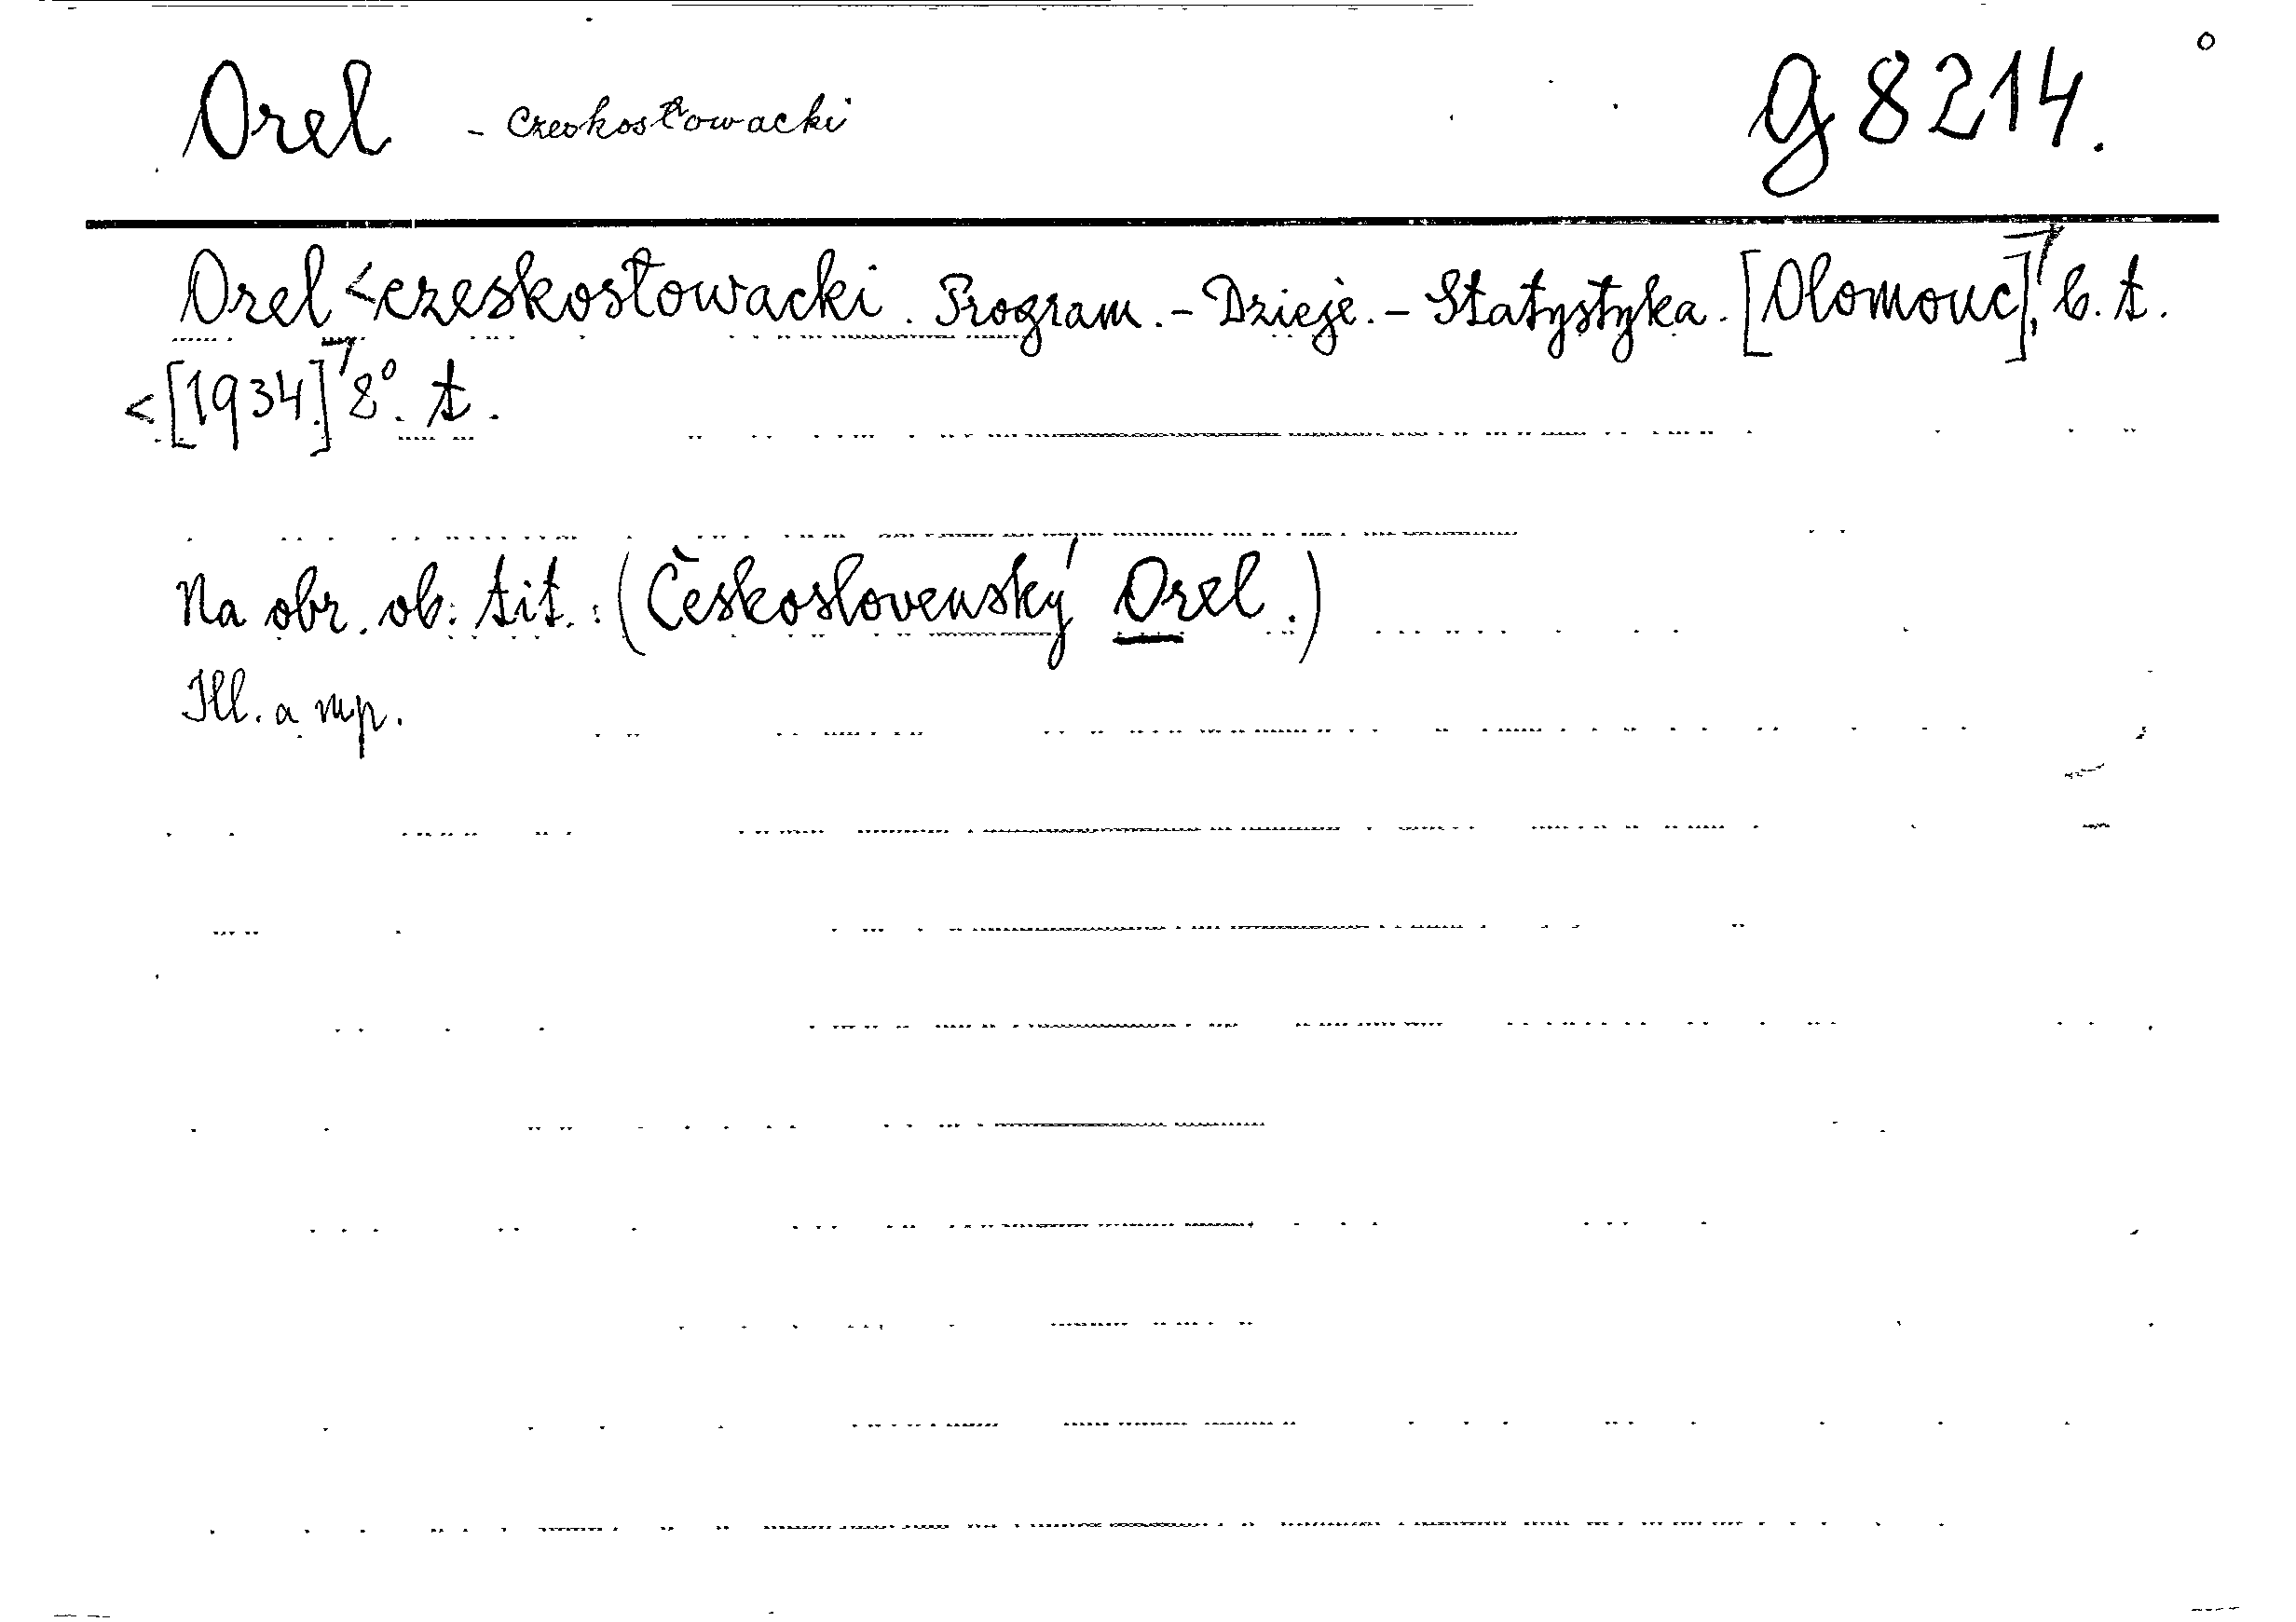 Orel - Czeskosłowacki g 8214.
Orel <czeskosłowacki. Program. - Dzieje. - Statystyka. [Olomouc], b. t.
<[1934.] 8°. t.
Na obr. ob. tit.: (Československý Orel.)
Ill. a mp.